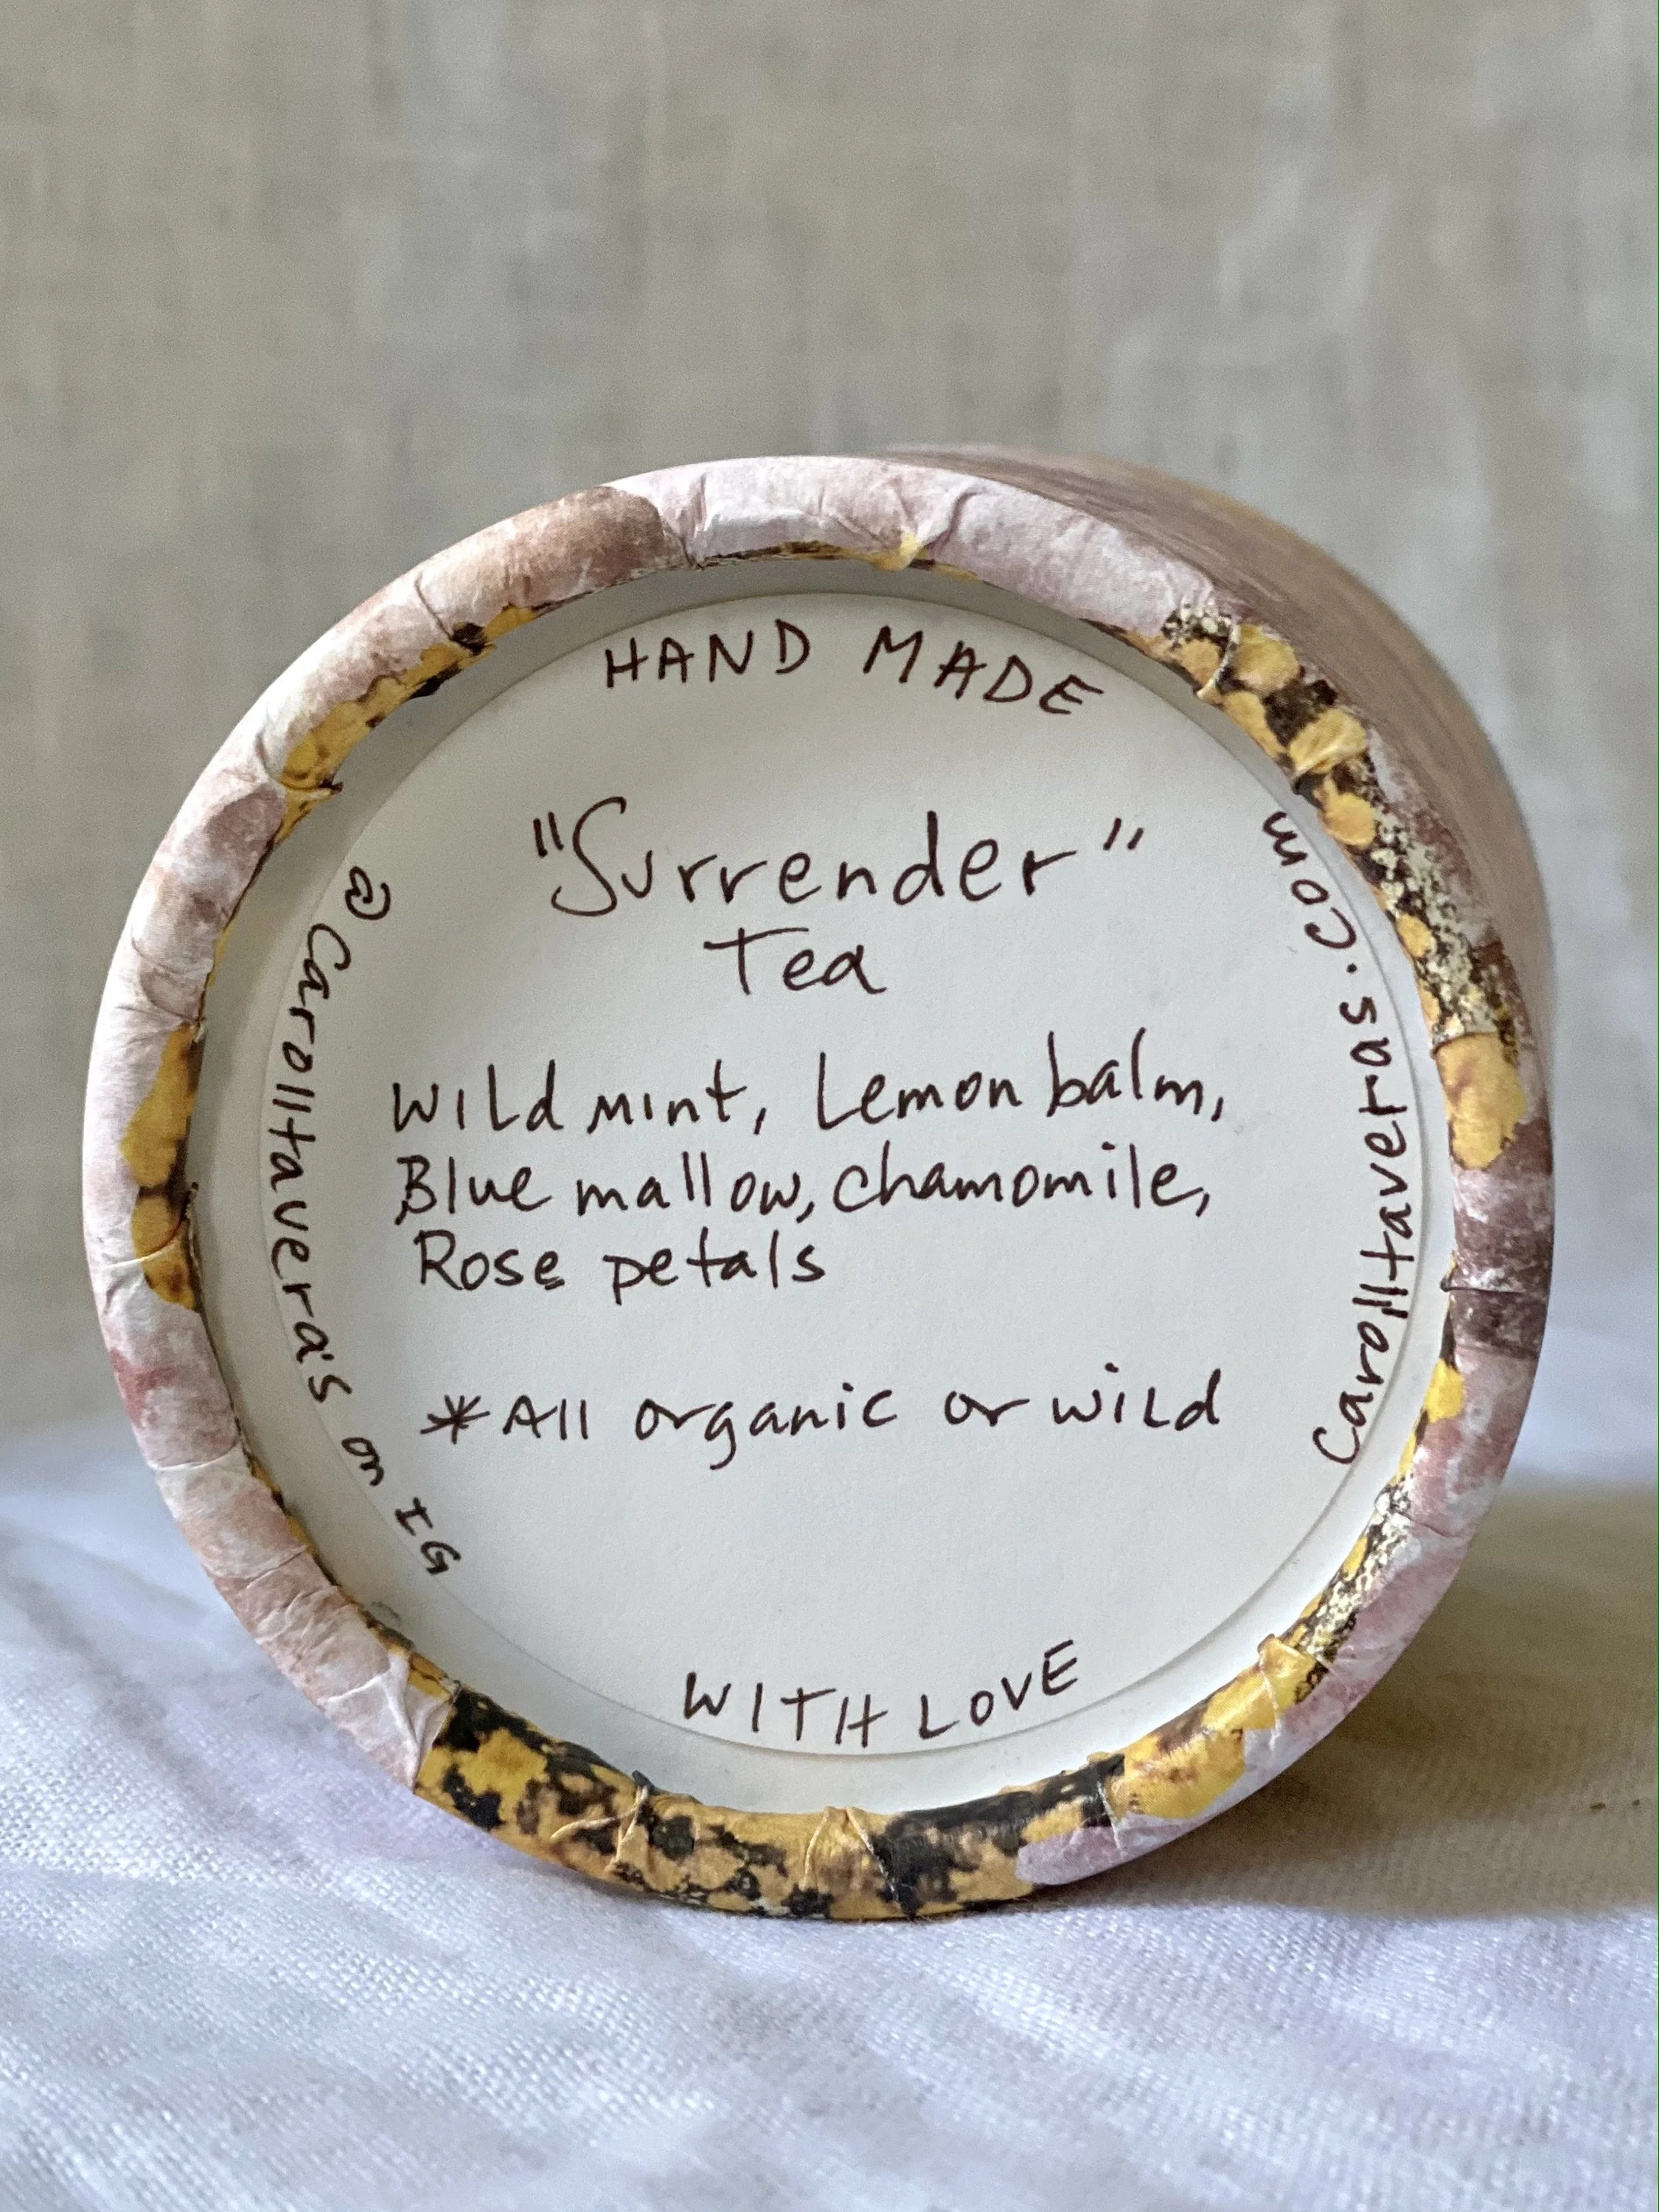 HAND MADE
"Surrender"
Tea
Wild mint, Lemon balm,
Blue mallow, chamomile,
Rose petals
*All organic or wild
WITH LOVE
@Carolltavera's on IG
Carolltaveras.com